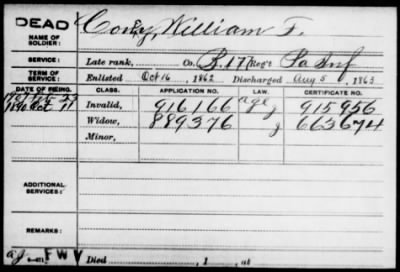 DEAD
NAME OF SOLDIER: William F.
SERVICE: Late rank, Co. B. 177 Reg't Pa Inf
TERM OF SERVICE: Enlisted Oct 16, 1862 Discharged Aug 5, 1863
DATE OF FILING. CLASS. APPLICATION NO. LAW. CERTIFICATE NO.
Invalid, 916166 age 915956
1890 Oct 11 Widow, 889376 g 663674
Minor,
ADDITIONAL SERVICES:
REMARKS:
FWV Died , 1 , at